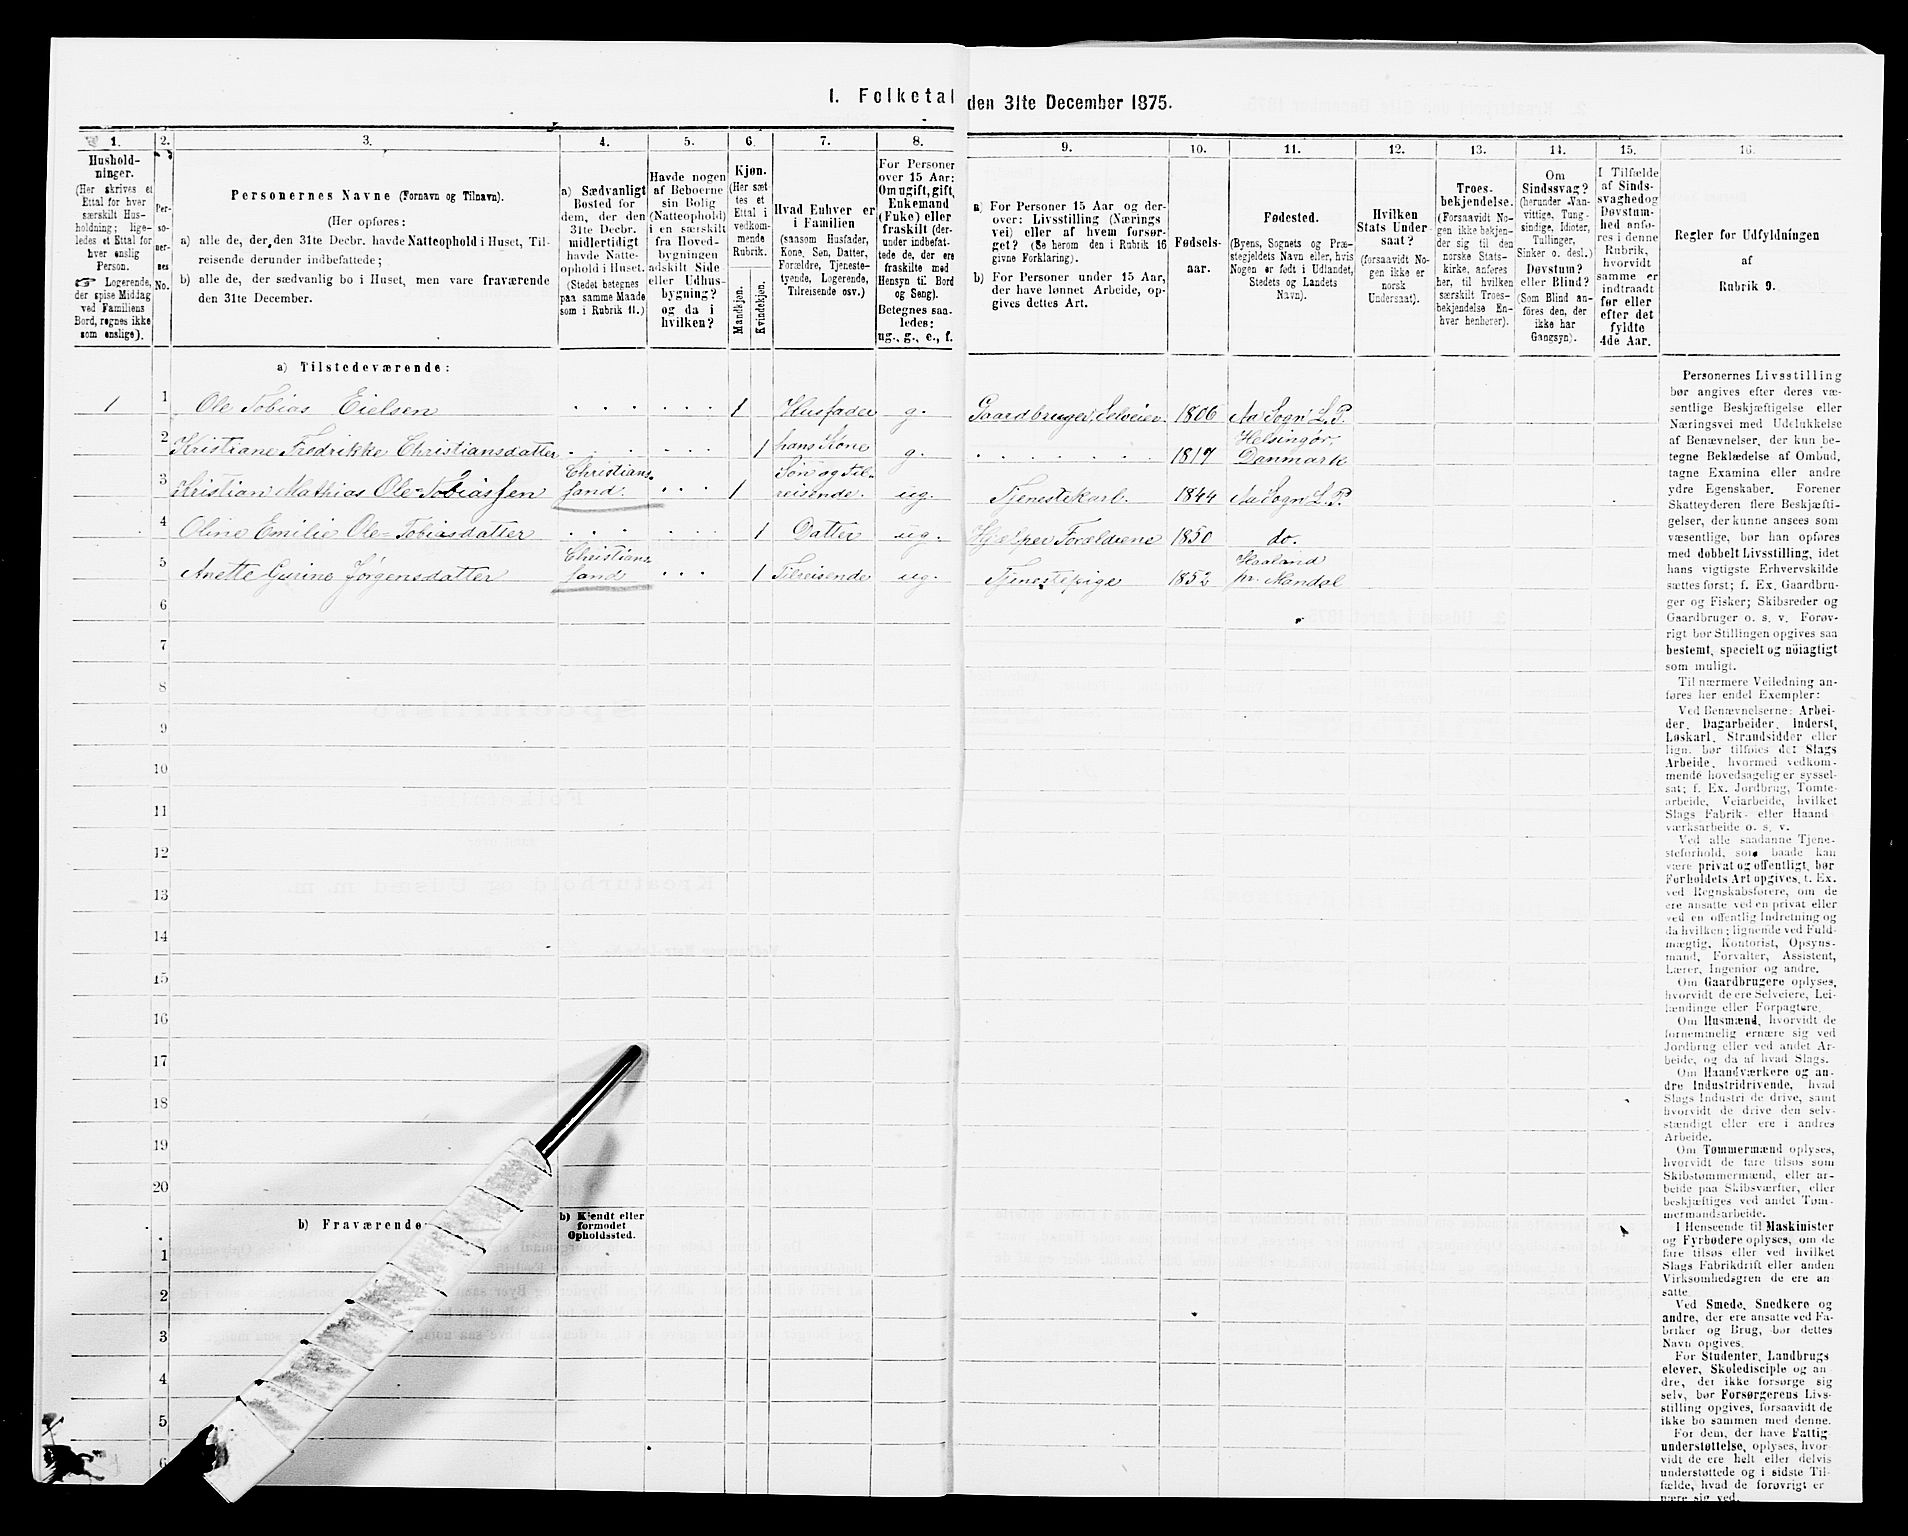 I. Folketal den 31te December 1875.
1. 2. 3. 4. 5. 6. 7. 8. 9. 10. 11. 12. 13. 14. 15. 16.
Hushold-
ninger.
(Her skrives et
Ettal for hver
særskilt Hus-
holdning; lige-
ledes et Ettal for
hver enslig
Person.
☞ Logerende,
der spise Middag
ved Familiens
Bord, regnes ikke
som enslige).
Per-
so-
ner-
nes
No.
Personernes Navne (Fornavn og Tilnavn).
(Her opføres:
a) alle de, der den 31te Decbr. havde Natteophold i Huset, Til-
reisende derunder indbefattede;
b) alle de, der sædvanlig bo i Huset, men vare fraværende
den 31te December.
a) Sædvanligt
Bosted for
dem, der den
31te Decbr.
midlertidigt
havde Natte-
ophold i Huset.
(Stedet betegnes
paa samme Maade
som i Rubrik 11.)
Havde nogen
af Beboerne
sin Bolig
(Natteophold)
i en særskilt
fra Hoved-
bygningen
adskilt Side-
eller Udhus-
bygning?
og da i
hvilken?
Kjøn.
(Her sæt-
tes et
Ettal i
vedkom-
mende
Rubrik.
Mandkjøn.
Kvindekjøn.
Hvad Enhver er
i Familien
(saasom Husfader,
Kone, Søn, Datter,
Forældre, Tjeneste-
tyende, Logerende,
Tilreisende osv.)
For Personer
over 15 Aar:
Om ugift, gift,
Enkemand
(Enke) eller
fraskilt (der-
under indbefat-
tede de, der ere
fraskilte med
Hensyn til Bord
og Seng).
Betegnes saa-
ledes:
ug., g., e., f.
a) For Personer 15 Aar og der-
over: Livsstilling (Nærings-
vei) eller af hvem forsør-
get? (Se herom den i Rubrik 16
givne Forklaring).
b) For Personer under 15 Aar,
der have lønnet Arbeide, op-
gives dettes Art.
Fødsels-
aar.
Fødested.
(Byens, Sognets og Præ-
stegjeldets Navn eller, hvis
Nogen er født i Udlandet,
Stedets og Landets
Navn).
Hvilken
Stats Under-
saat?
(forsaavidt No-
gen ikke er
norsk
Undersaat).
Troes-
bekjendelse.
(Forsaavidt No-
gen ikke bekjen-
der sig til den
norske Stats-
kirke, anføres
her, til hvilken
særskilt Troes-
bekjendelse En-
hver henhører).
Om
Sindssvag?
(herunder Van-
vittige, Tung-
sindige, Idioter,
Tullinger,
Sinker o. desl.)
Døvstum?
eller Blind?
(Som Blind an-
føres den, der
ikke har
Gangsyn).
I Tilfælde
af Sinds-
svaghed og
Døvstum-
hed anfø-
res i denne
Rubrik,
hvorvidt
samme er
indtraadt
før eller
efter det
fyldte
4de Aar.
Regler for Udfyldningen
af
Rubrik 9.
a) Tilstedeværende:
1 1 Ole Tobias Eielsen 1 Husfader g. Gaardbruger Selveier 1806 Aa Sogn L. P.
2 Kristiane Fredrikke Christiansdatter 1 hans Kone g. 1817 Helsingør, Danmark
3 Kristian Mathias Ole-Tobiassen Christianssand. 1 Søn og Tilreisende. ug. Tjenestekarl. 1844 Aa Sogn L. P.
4 Oline Emilie Ole-Tobiasdatter 1 Datter ug. Hjælper Forældrene 1850 do.
5 Anette Gurine Jørgensdatter Christianssand 1 Tilreisende ug. Tjenestepige 1852 Haaland pr. Mandal
6
7
8
9
10
11
12
13
14
15
16
17
18
19
20
b) Fraværende
b) Kjendt eller
formodet
Opholdssted.
1
2
3
4
5
6
Personernes Livsstilling
bør angives efter deres væ-
sentlige Beskjæftigelse eller
Næringsvei med Udelukkelse
af Benævnelser, der kun be-
tegne Beklædelse af Ombud,
tagne Examina eller andre
ydre Egenskaber. Forener
Skatteyderen flere Beskjæfti-
gelser, der kunne ansees som
væsentlige, bør han opføres
med dobbelt Livsstilling, idet
hans vigtigste Erhvervskilde
sættes først; f. Ex. Gaardbru-
ger og Fisker; Skibsreder og
Gaardbruger o. s. v. Forøv-
rigt bør Stillingen opgives saa
bestemt, specielt og nöiagtigt
som muligt.
Til nærmere Veiledning an-
føres her endel Exempler:
Ved Benævnelserne: Arbei-
der, Dagarbeider, Inderst,
Løskarl, Strandsidder eller
lign. bør tilføies det Slags
Arbeide, hvormed vedkom-
mende hovedsagelig er syssel-
sat; f. Ex. Jordbrug, Tomte-
arbeide, Veiarbeide, hvilket
Slags Fabrik- eller Haand-
værksarbeide o. s. v.
Ved alle saadanne Tjene-
steforhold, som baade kan
være privat og offentligt, bør
Forholdets Art opgives, t. Ex.
ved Regnskabsførere, om de
ere ansatte ved en privat eller
ved en offentlig Indretning og
da hvilken; lignende ved Fuld-
mægtig, Kontorist, Opsyns-
mand, Forvalter, Assistent,
Lærer, Ingeniør og andre.
Om Gaardbrugere oplyses,
hvorvidt de ere Selveiere, Lei-
lændinge eller Forpagtere.
Om Husmænd, hvorvidt de
fornemmelig ernære sig ved
Jordbrug eller ved andet Ar-
beide, og da af hvad Slags.
Om Haandværkere og an-
dre Industridrivende, hvad
Slags Industri de drive, samt
hvorvidt de drive den selv-
stændigt eller ere i andres
Arbeide.
Om Tømmermænd oplyses,
hvorvidt de fare tilsøs som
Skibstømmermænd, eller ar-
beide paa Skibsværfter, eller
beskjæftiges ved andet Tøm-
mermandsarbeide.
I Henseende til Maskinister
og Fyrbødere oplyses, om de
fare tilsøs eller ved hvilket
Slags Fabrikdrift eller anden
Virksomhedsgren de ere an-
satte.
Ved Smede, Snedkere og
andre, der ere ansatte ved Fa-
briker og Brug, bør dettes
Navn opgives.
For Studenter, Landbrugs-
elever, Skoledisciple og an-
dre, der ikke forsørge sig
selv, bør Forsørgerens Livs-
stilling opgives, forsaavidt de
ikke bo sammen med denne.
For dem, der have Fattig-
understøttelse, oplyses, hvor-
vidt de ere helt eller delvis
understøttede og i sidste Til-
fælde, hvad de forøvrigt er-
nære sig ved.